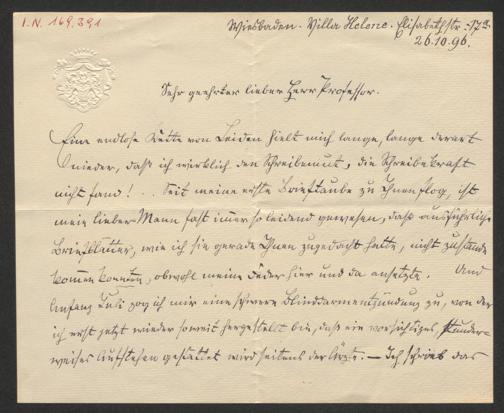 I.N. 169.391
Wiesbaden. Villa Helene. Elisabethstr. 17a.
26.10.96.
Sehr geehrter lieber Herr Professor.
Eine endlose Kette von Leiden hielt mich lange, lange derart
nieder, daß ich wirklich den Schreibemut, die Schreibekraft
nicht fand! .. Seit meine erste Brieftaube zu Ihnen flog, ist
mein lieber Mann fast immer so leidend gewesen, daß ausführliche
Briefblätter, wie ich sie gerade Ihnen zugedacht hatte, nicht zustande
kommen konnten, obwohl meine Feder hier und da ansetzte. Und
Anfang Juli zog ich mir eine schwere Blinddarmentzündung zu, von der
ich erst jetzt wieder soweit hergestellt bin, daß ein vorsichtiges, stunden-
weises Aufstehen gestattet wird seitens der Ärzte. — Ich schrieb das